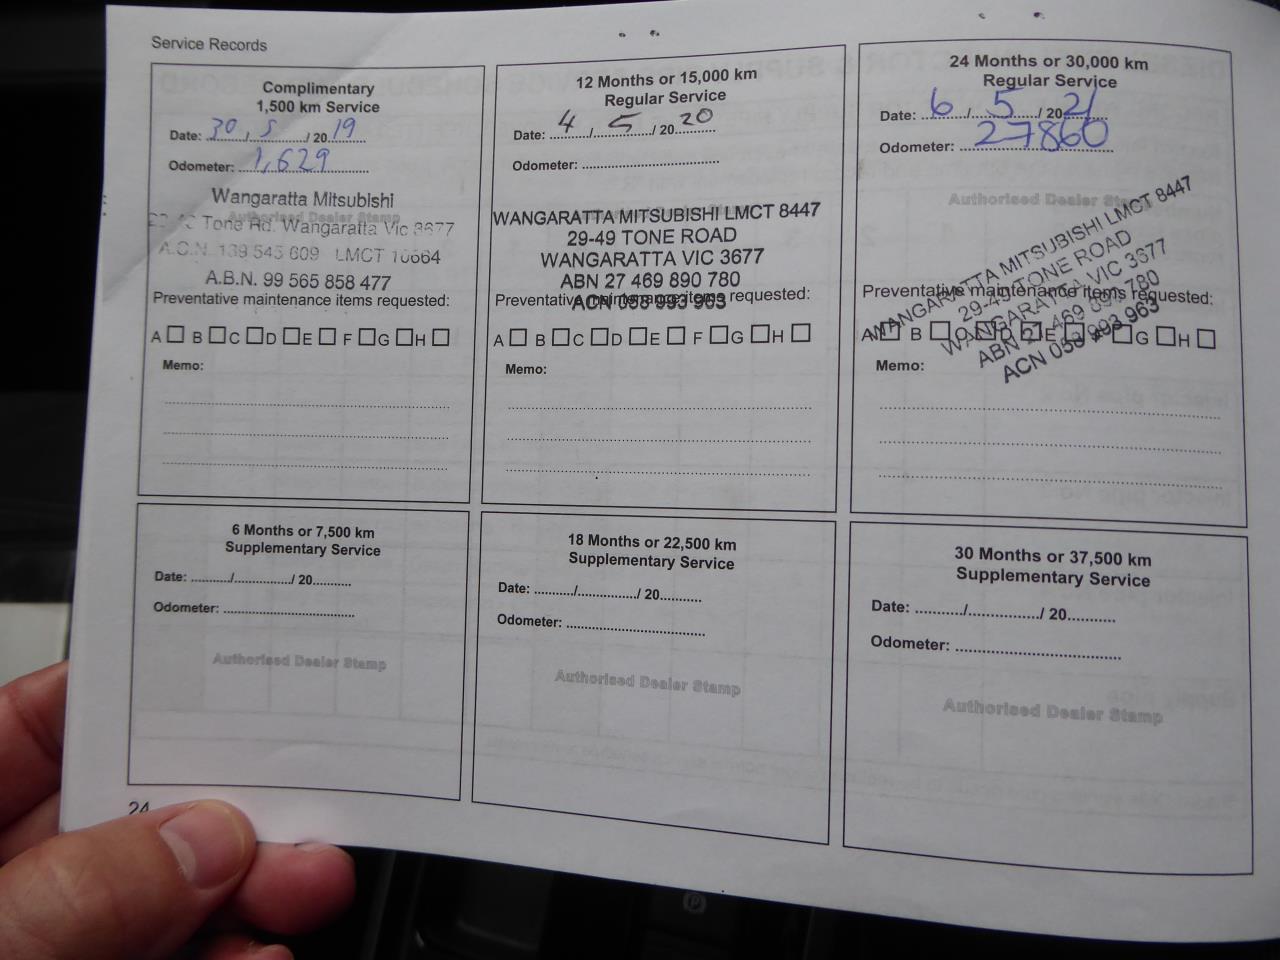 Service Records
Complimentary
1,500 km Service
Date: 30 / 5 / 2019
Odometer: 1,629
Wangaratta Mitsubishi
Authorised Dealer Stamp
Tone Rd. Wangaratta Vic 3677
A.C.N. 139 545 609 LMCT 10664
A.B.N. 99 565 858 477
Preventative maintenance items requested:
A B C D E F G H
Memo:
12 Months or 15,000 km
Regular Service
Date: 4 / 5 / 2020
Odometer:
WANGARATTA MITSUBISHI LMCT 8447
29-49 TONE ROAD
WANGARATTA VIC 3677
ABN 27 469 890 780
Preventative maintenance items requested:
ACN 058 993 963
A B C D E F G H
Memo:
24 Months or 30,000 km
Regular Service
Date: 6 / 5 / 2021
Odometer: 27860
Authorised Dealer Stamp
WANGARATTA MITSUBISHI LMCT 8447
29-49 TONE ROAD
WANGARATTA VIC 3677
ABN 27 469 890 780
ACN 058 993 963
Preventative maintenance items requested:
A B C D E F G H
Memo:
6 Months or 7,500 km
Supplementary Service
Date: / / 20
Odometer:
Authorised Dealer Stamp
18 Months or 22,500 km
Supplementary Service
Date: / / 20
Odometer:
Authorised Dealer Stamp
30 Months or 37,500 km
Supplementary Service
Date: / / 20
Odometer:
Authorised Dealer Stamp
24